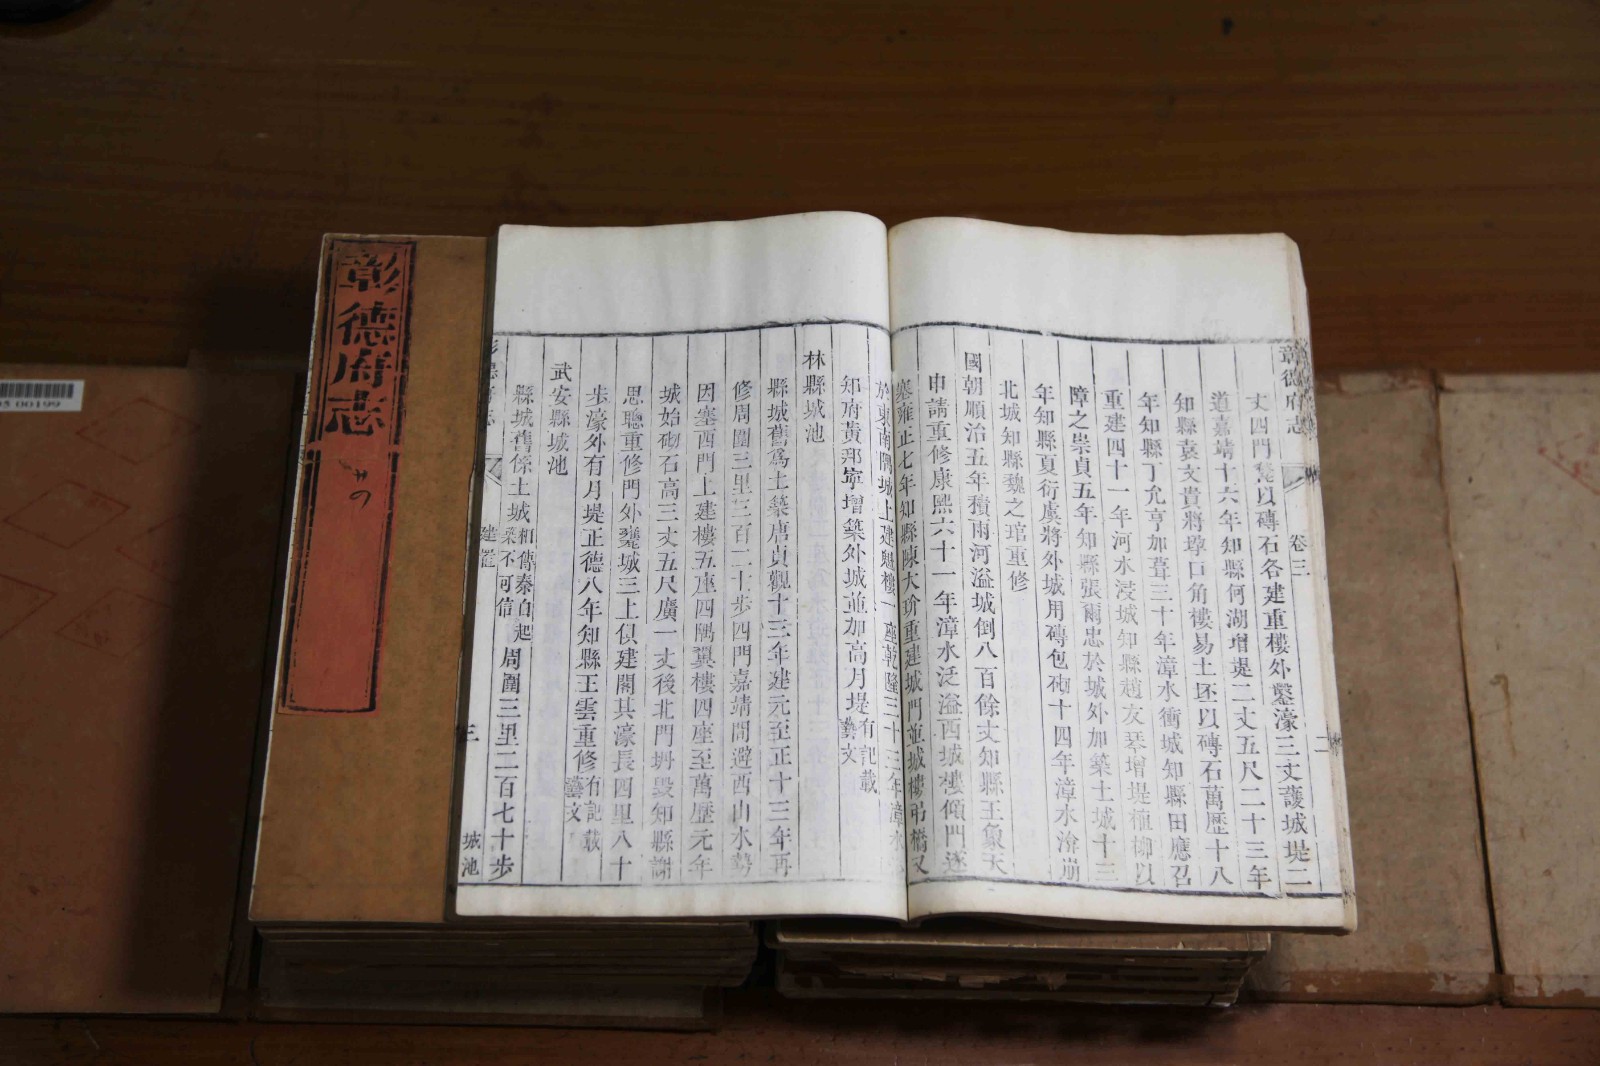 彰德府志
彰德府志
卷三
二
丈四門甃以磚石各建重樓外鑿濠三丈護城堤二
道嘉靖十六年知縣何湖增堤二丈五尺二十三年
知縣袁文貴將垛口角樓易土坯以磚石萬歷十八
年知縣丁允亨加葺三十年漳水衝城知縣田應召
重建四十一年河水浸城知縣趙友琴增堤植柳以
障之崇貞五年知縣張爾忠於城外加築土城十三
年知縣夏衍虞將外城用磚包砌十四年漳水渰崩
北城知縣魏之琯重修
國朝順治五年積雨河溢城倒八百餘丈知縣王象天
申請重修康熙六十一年漳水泛溢西城樓傾門遂
塞雍正七年知縣陳大玠重建城門並城樓吊橋又
於東南隅城上建魁樓一座乾隆三十三年漳水
知府黃邦寧增築外城並加高月堤有記載藝文
林縣城池
縣城舊爲土築唐貞觀十三年建元至正十三年再
修周圍三里三百二十步四門嘉靖間避西山水勢
因塞西門上建樓五座四隅翼樓四座至萬歷元年
城始砌石高三丈五尺廣一丈後北門坍毀知縣謝
思聰重修門外甕城三上俱建閣其濠長四里八十
步濠外有月堤正德八年知縣王雲重修有記載藝文
武安縣城池
縣城舊係土城相傳秦白起築不可信周圍三里二百七十步
建置
三
城池
00199